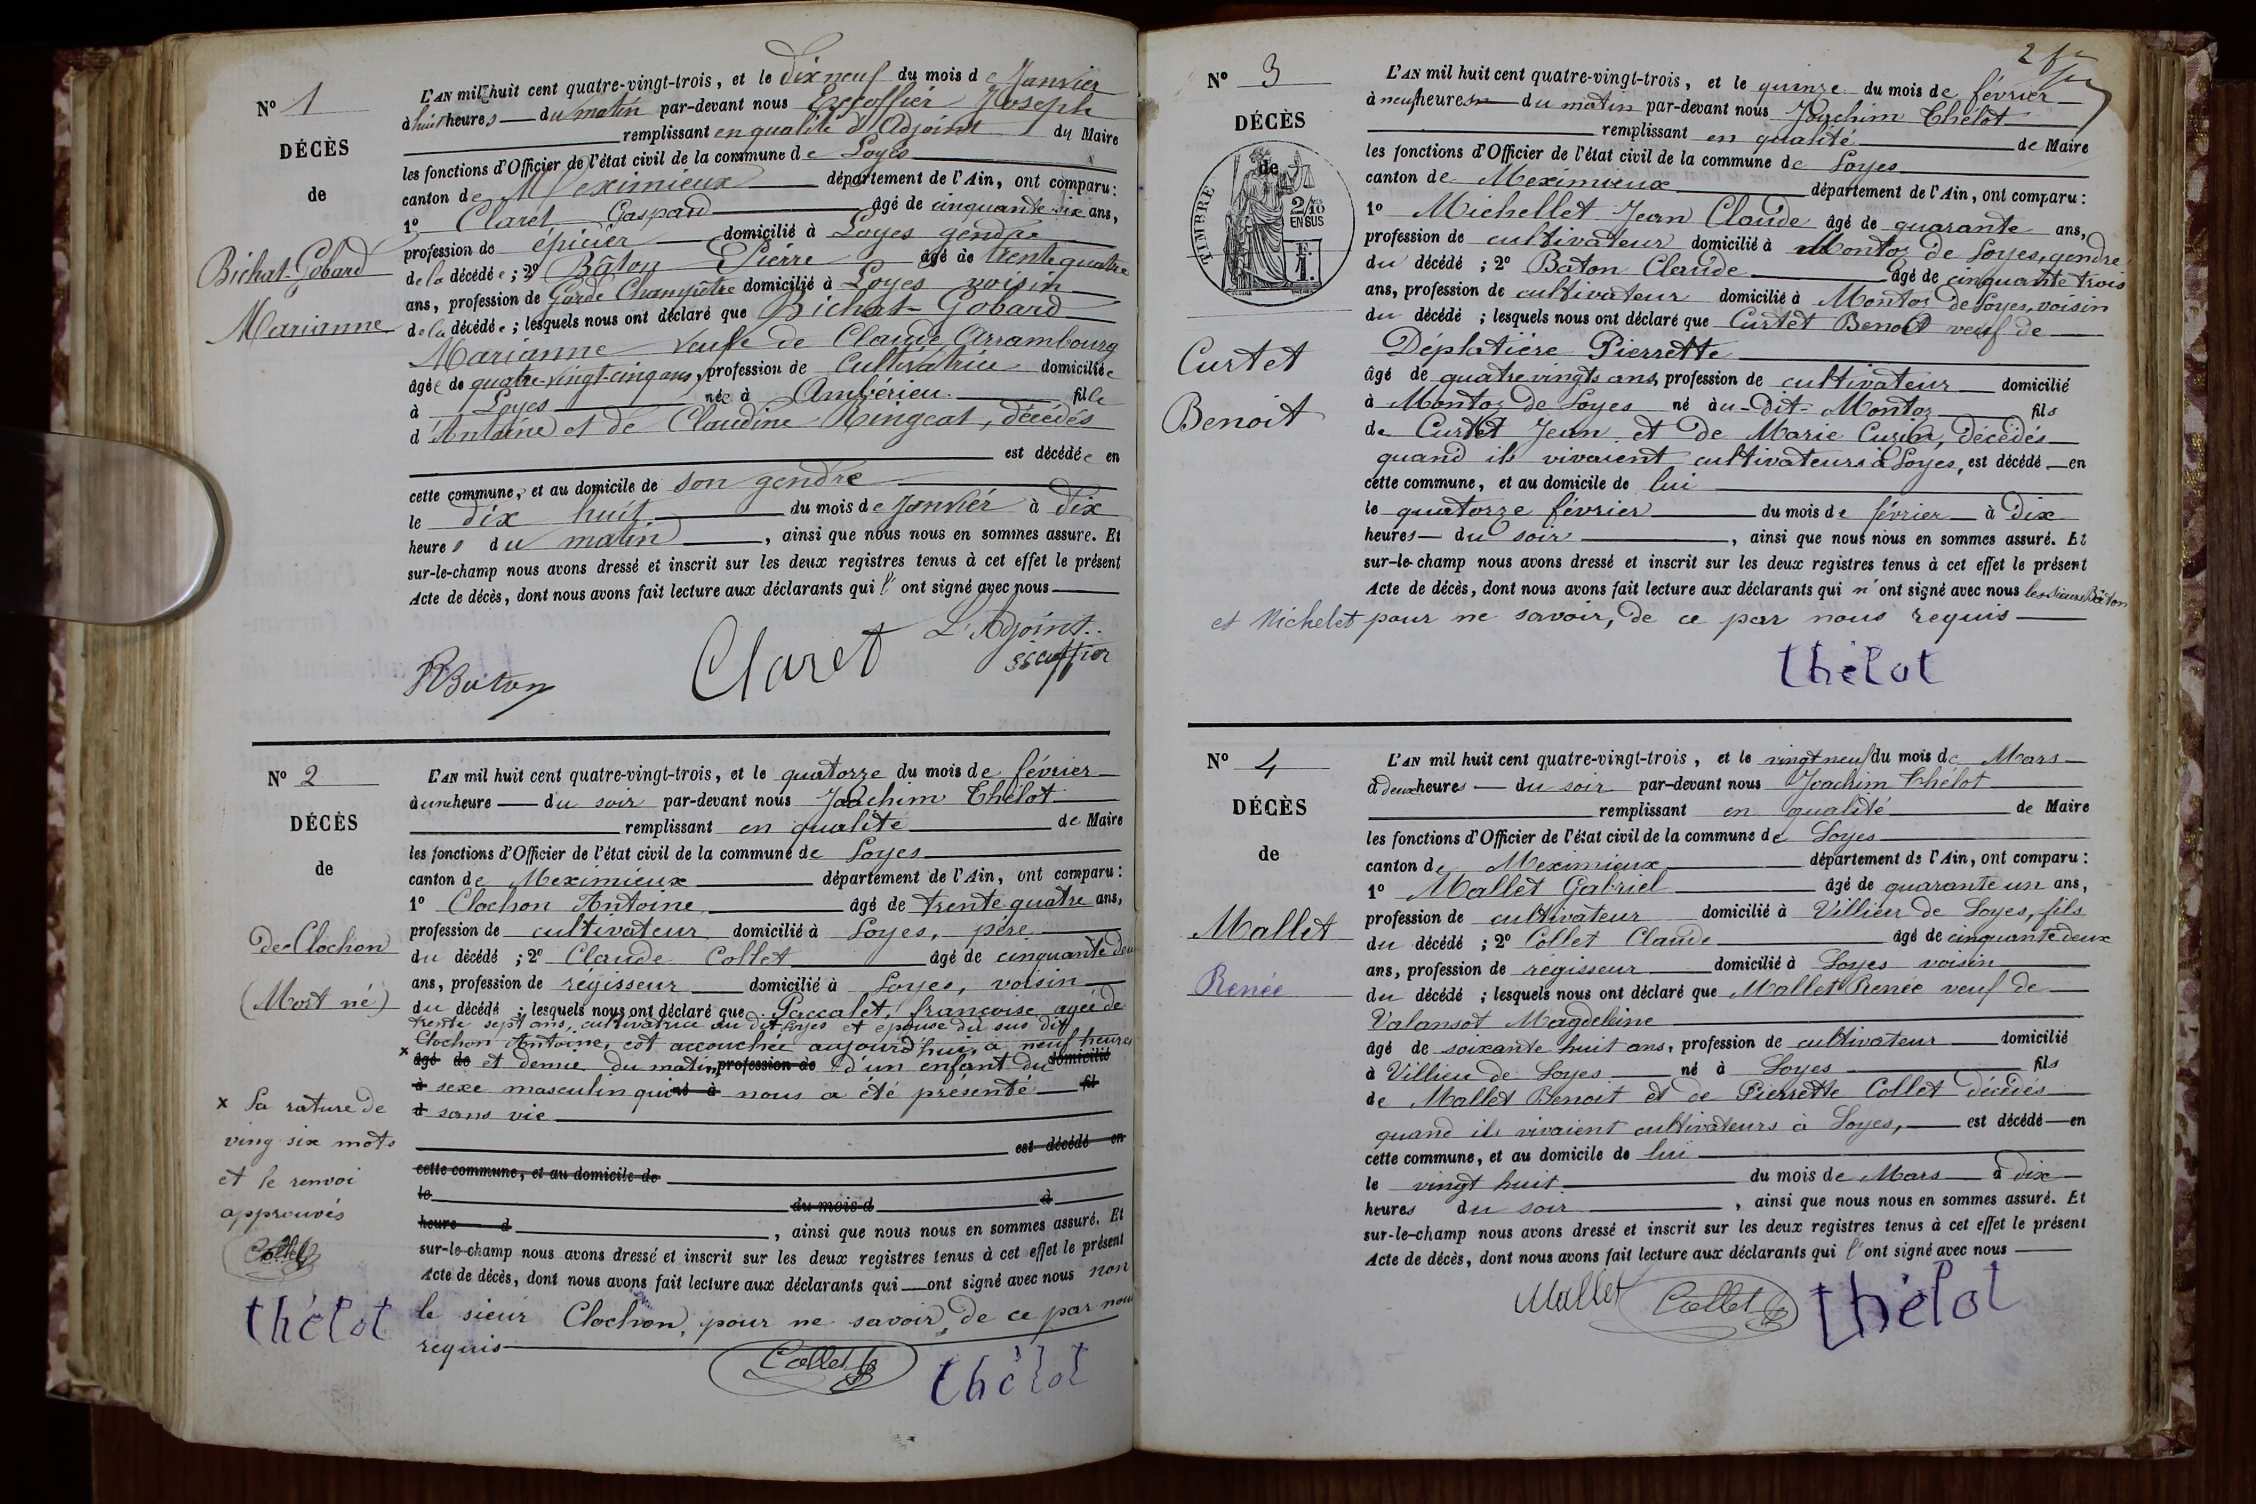 N° 1
DÉCÈS
de
Bichat-Gobard
Marianne
L'AN mil huit cent quatre-vingt-trois, et le dix neuf du mois de Janvier
à huit heures du matin par-devant nous Escoffier Joseph
remplissant en qualité d'Adjoint du Maire
les fonctions d'Officier de l'état civil de la commune de Loyes
canton de Meximieux département de l'Ain, ont comparu :
1° Claret Gaspard âgé de cinquante-six ans,
profession de épicier domicilié à Loyes gendre
de la décédée ; 2° Bâton Pierre âgé de trente quatre
ans, profession de Garde Champêtre domicilié à Loyes voisin
de la décédée ; lesquels nous ont déclaré que Bichat-Gobard
Marianne veuve de Claude Arrambourg
âgée de quatre-vingt-cinq ans, profession de Cultivatrice domiciliée
à Loyes née à Ambérieu fille
d'Antoine et de Claudine Ringeat, décédés
est décédée en
cette commune, et au domicile de son gendre
le dix huit du mois de Janvier à dix
heures du matin, ainsi que nous nous en sommes assuré. Et
sur-le-champ nous avons dressé et inscrit sur les deux registres tenus à cet effet le présent
Acte de décès, dont nous avons fait lecture aux déclarants qui l'ont signé avec nous
L'Adjoint
PBaton Claret Escoffier
N° 2
DÉCÈS
de
de Clochon
(Mort né)
L'AN mil huit cent quatre-vingt-trois, et le quatorze du mois de février
à une heure du soir par-devant nous Joachim Thélot
remplissant en qualité de Maire
les fonctions d'Officier de l'état civil de la commune de Loyes
canton de Meximieux département de l'Ain, ont comparu :
1° Clochon Antoine âgé de trente quatre ans,
profession de cultivateur domicilié à Loyes, père
du décédé ; 2° Claude Collet âgé de cinquante deux
ans, profession de régisseur domicilié à Loyes, voisin
du décédé ; lesquels nous ont déclaré que Paccalet, françoise agée de
trente sept ans, cultivatrice au dit Loyes et épouse du sus dit
Clochon Antoine, est accouchée aujourd'hui, à neuf heures
x âgé de et demie du matin, profession de d'un enfant du domicilié
à sexe masculin qui né à nous a été présenté fil
d sans vie
est décédé en
cette commune, et au domicile de
le du mois d à
heure d , ainsi que nous nous en sommes assuré. Et
sur-le-champ nous avons dressé et inscrit sur les deux registres tenus à cet effet le présent
Acte de décès, dont nous avons fait lecture aux déclarants qui ont signé avec nous non
le sieur Clochon, pour ne savoir, de ce par nous
requis
Collet Thélot
x La rature de
ving six mots
et le renvoi
approuvés
Collet
Thélot
2
N° 3
DÉCÈS
de
TIMBRE
2/10
EN SUS
F.
1.
Curtet
Benoit
L'AN mil huit cent quatre-vingt-trois, et le quinze du mois de février
à neuf heures du matin par-devant nous Joachim Thélot
remplissant en qualité de Maire
les fonctions d'Officier de l'état civil de la commune de Loyes
canton de Meximieux département de l'Ain, ont comparu :
1° Michellet Jean Claude âgé de quarante ans,
profession de cultivateur domicilié à Montoz de Loyes, gendre
du décédé ; 2° Baton Claude âgé de cinquante trois
ans, profession de cultivateur domicilié à Montoz de Loyes, voisin
du décédé ; lesquels nous ont déclaré que Curtet Benoit veuf de
Déplatière Pierrette
âgé de quatre vingts ans, profession de cultivateur domicilié
à Montoz de Loyes né àu-dit-Montoz fils
de Curtet Jean et de Marie Cuzin, décédés
quand ils vivaient cultivateurs à Loyes, est décédé en
cette commune, et au domicile de lui
le quatorze février du mois de février à dix
heures du soir, ainsi que nous nous en sommes assuré. Et
sur-le-champ nous avons dressé et inscrit sur les deux registres tenus à cet effet le présent
Acte de décès, dont nous avons fait lecture aux déclarants qui n'ont signé avec nous les sieurs Bâton
et Michelet pour ne savoir, de ce par nous requis
Thélot
N° 4
DÉCÈS
de
Mallet
Renée
L'AN mil huit cent quatre-vingt-trois, et le vingt neuf du mois de Mars
à deux heures du soir par-devant nous Joachim Thélot
remplissant en qualité de Maire
les fonctions d'Officier de l'état civil de la commune de Loyes
canton de Meximieux département de l'Ain, ont comparu :
1° Mallet Gabriel âgé de quarante un ans,
profession de cultivateur domicilié à Villieu de Loyes, fils
du décédé ; 2° Collet Claude âgé de cinquante deux
ans, profession de régisseur domicilié à Loyes voisin
du décédé ; lesquels nous ont déclaré que Mallet Renée veuf de
Valansot Magdeleine
âgé de soixante huit ans, profession de cultivateur domicilié
à Villieu de Loyes né à Loyes fils
de Mallet Benoit et de Pierrette Collet décédés
quand ils vivaient cultivateurs à Loyes, est décédé en
cette commune, et au domicile de lui
le vingt huit du mois de Mars à dix
heures du soir, ainsi que nous nous en sommes assuré. Et
sur-le-champ nous avons dressé et inscrit sur les deux registres tenus à cet effet le présent
Acte de décès, dont nous avons fait lecture aux déclarants qui l'ont signé avec nous
Mallet Collet Thélot